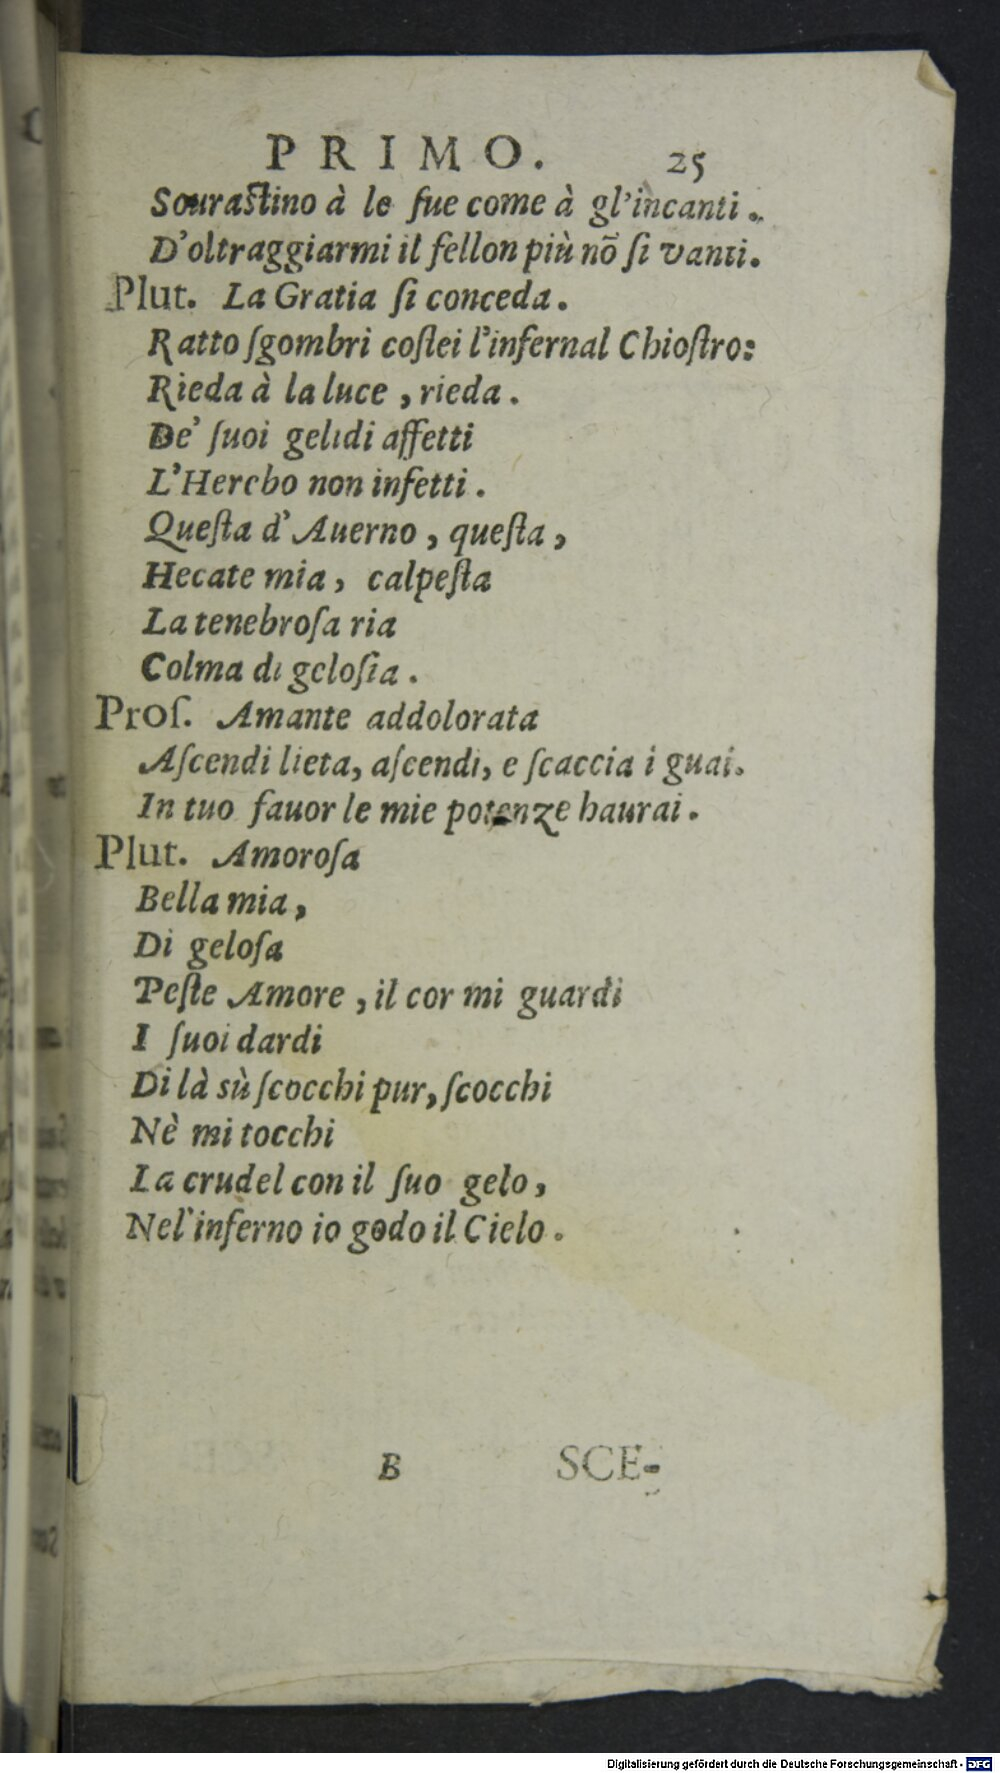 PRIMO. 25
Sourastino à le sue come à gl'incanti.
D'oltraggiarmi il fellon più nõ ſi vanti.
Plut. La Gratia ſi conceda.
Ratto ſgombri coſtei l'infernal Chioſtro:
Rieda à la luce, rieda.
De' ſuoi gelidi affetti
L'Herebo non infetti.
Queſta d'Auerno, queſta,
Hecate mia, calpeſta
La tenebroſa ria
Colma di geloſia.
Proſ. Amante addolorata
Aſcendi lieta, aſcendi, e ſcaccia i guai.
In tuo fauor le mie potenze haurai.
Plut. Amoroſa
Bella mia,
Di geloſa
Peſte Amore, il cor mi guardi
I ſuoi dardi
Di là sù ſcocchi pur, ſcocchi
Nè mi tocchi
La crudel con il ſuo gelo,
Nel'inferno io godo il Cielo.
B SCE-
Digitalisierung gefördert durch die Deutsche Forschungsgemeinschaft - DFG